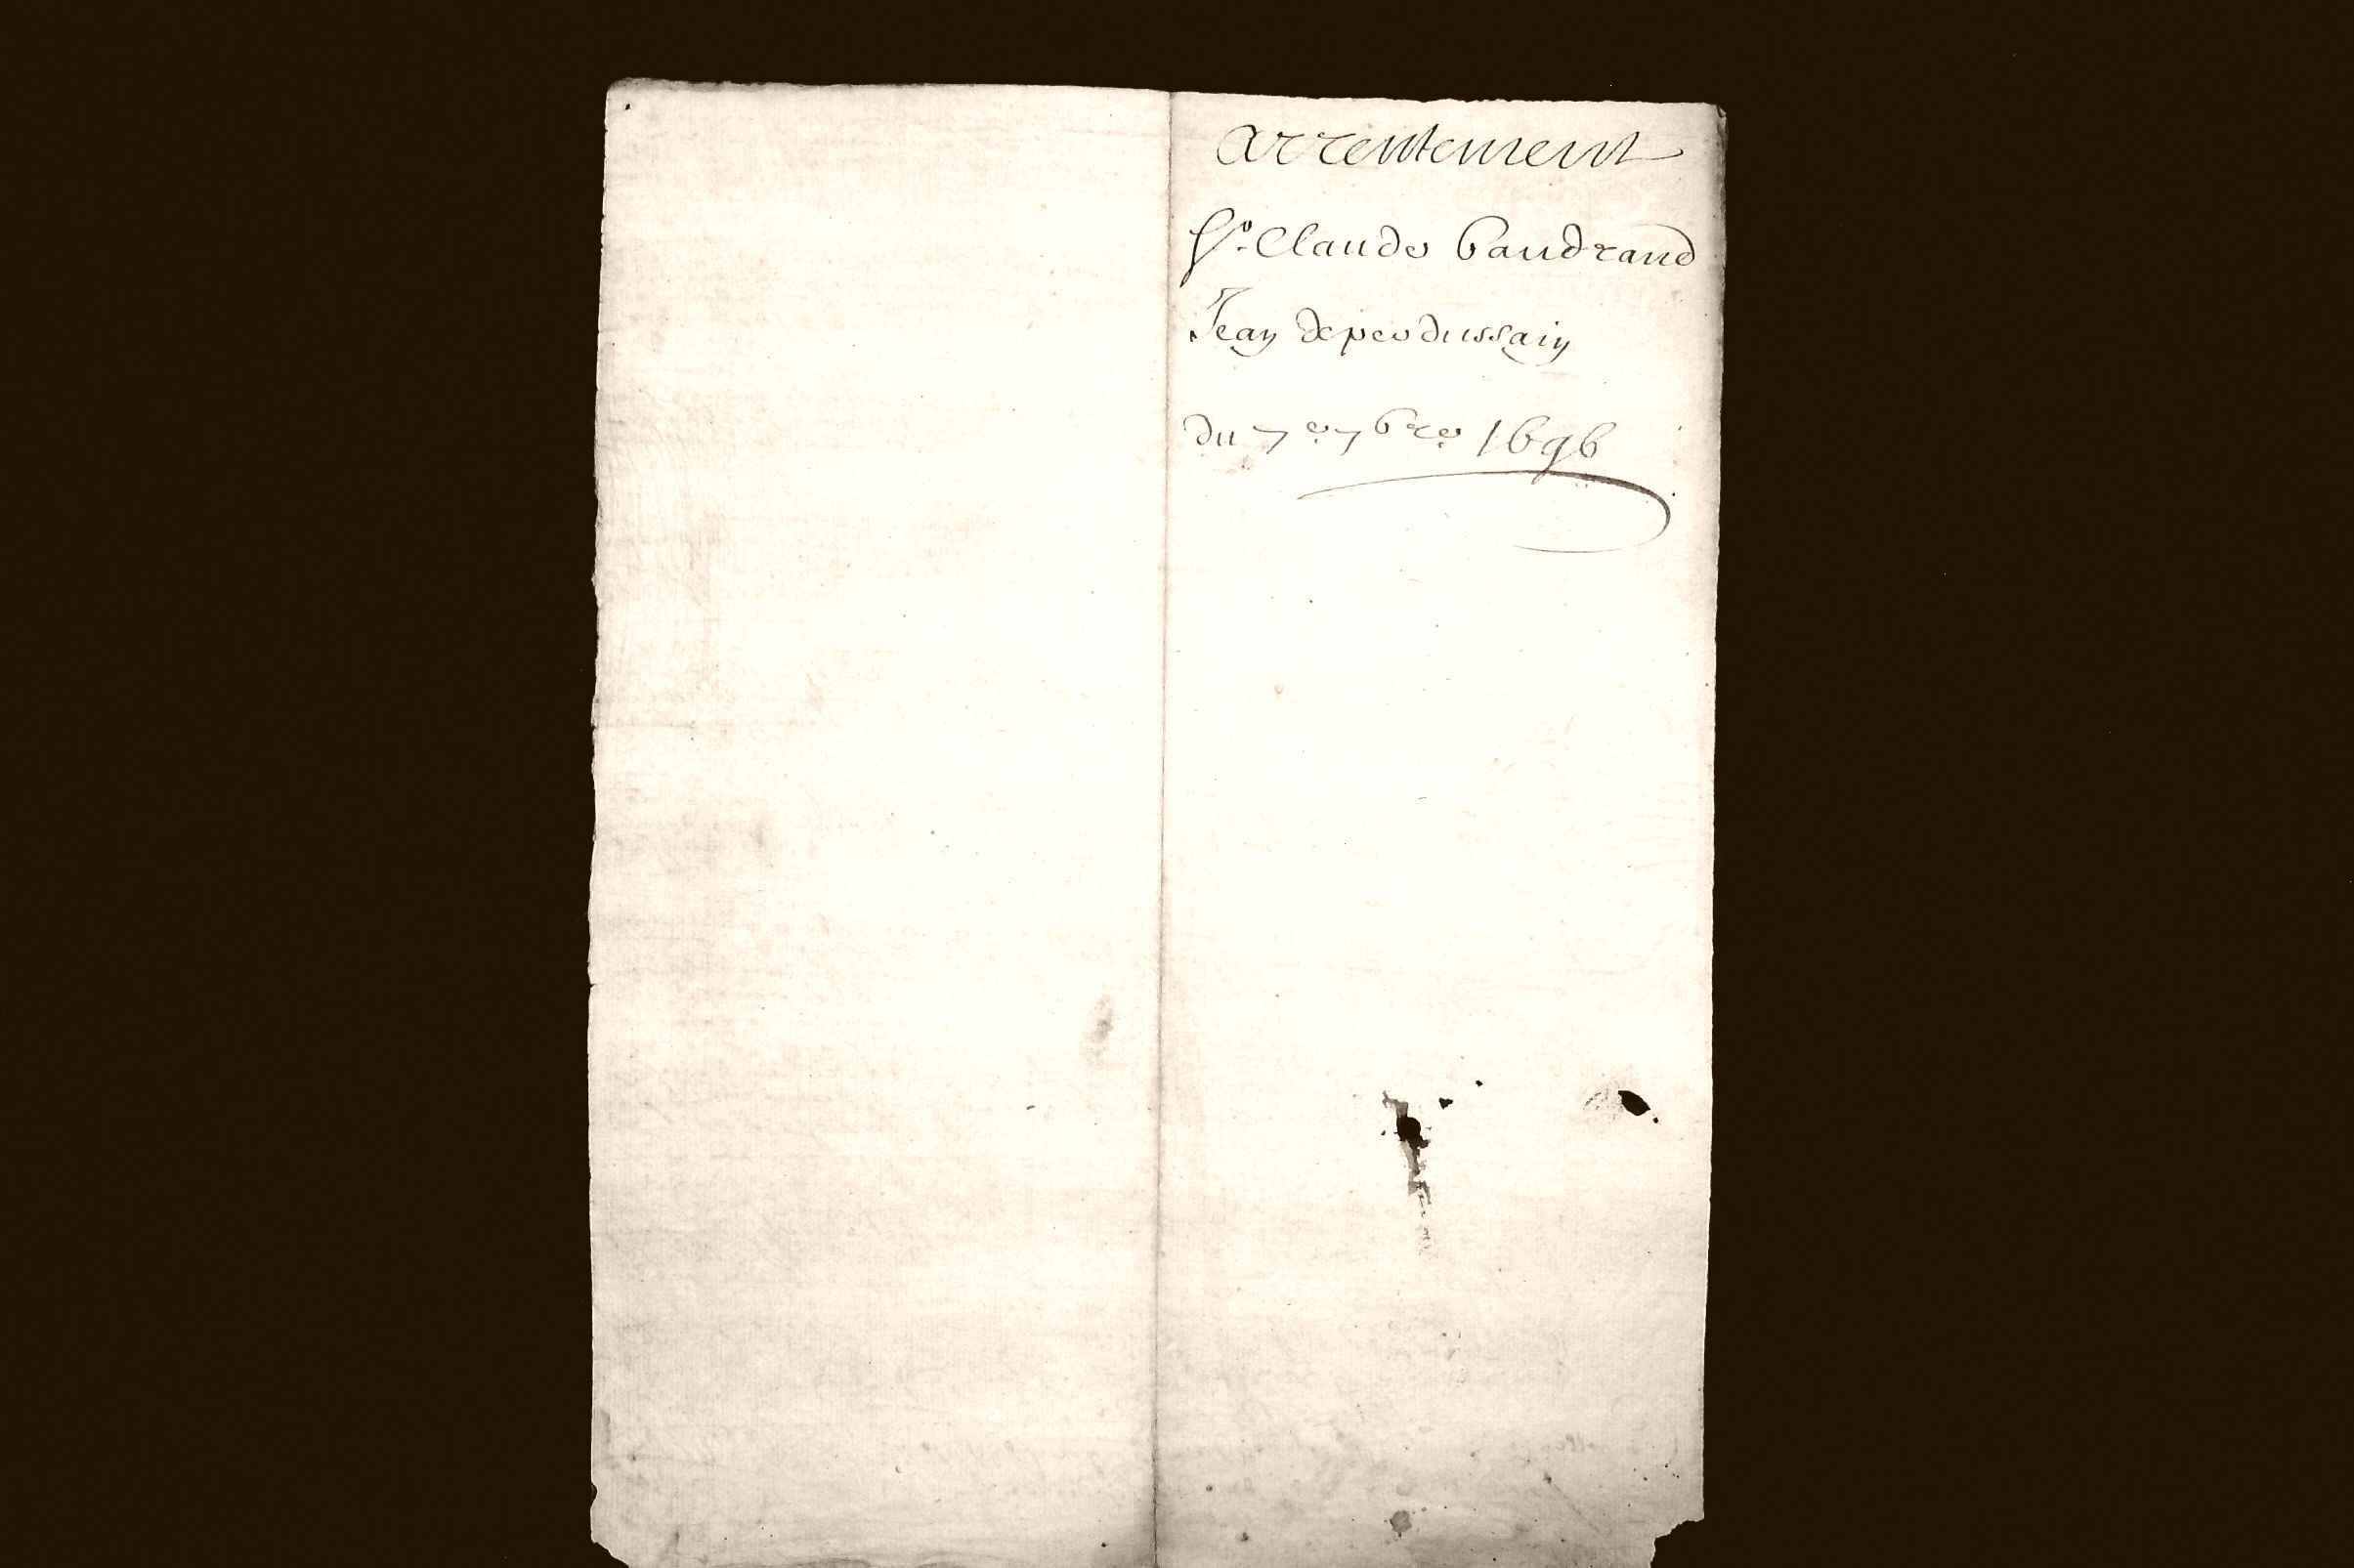 arrentement
Sr. Claude baudrand
Jean depeodussain
du 7e 7bre 1696